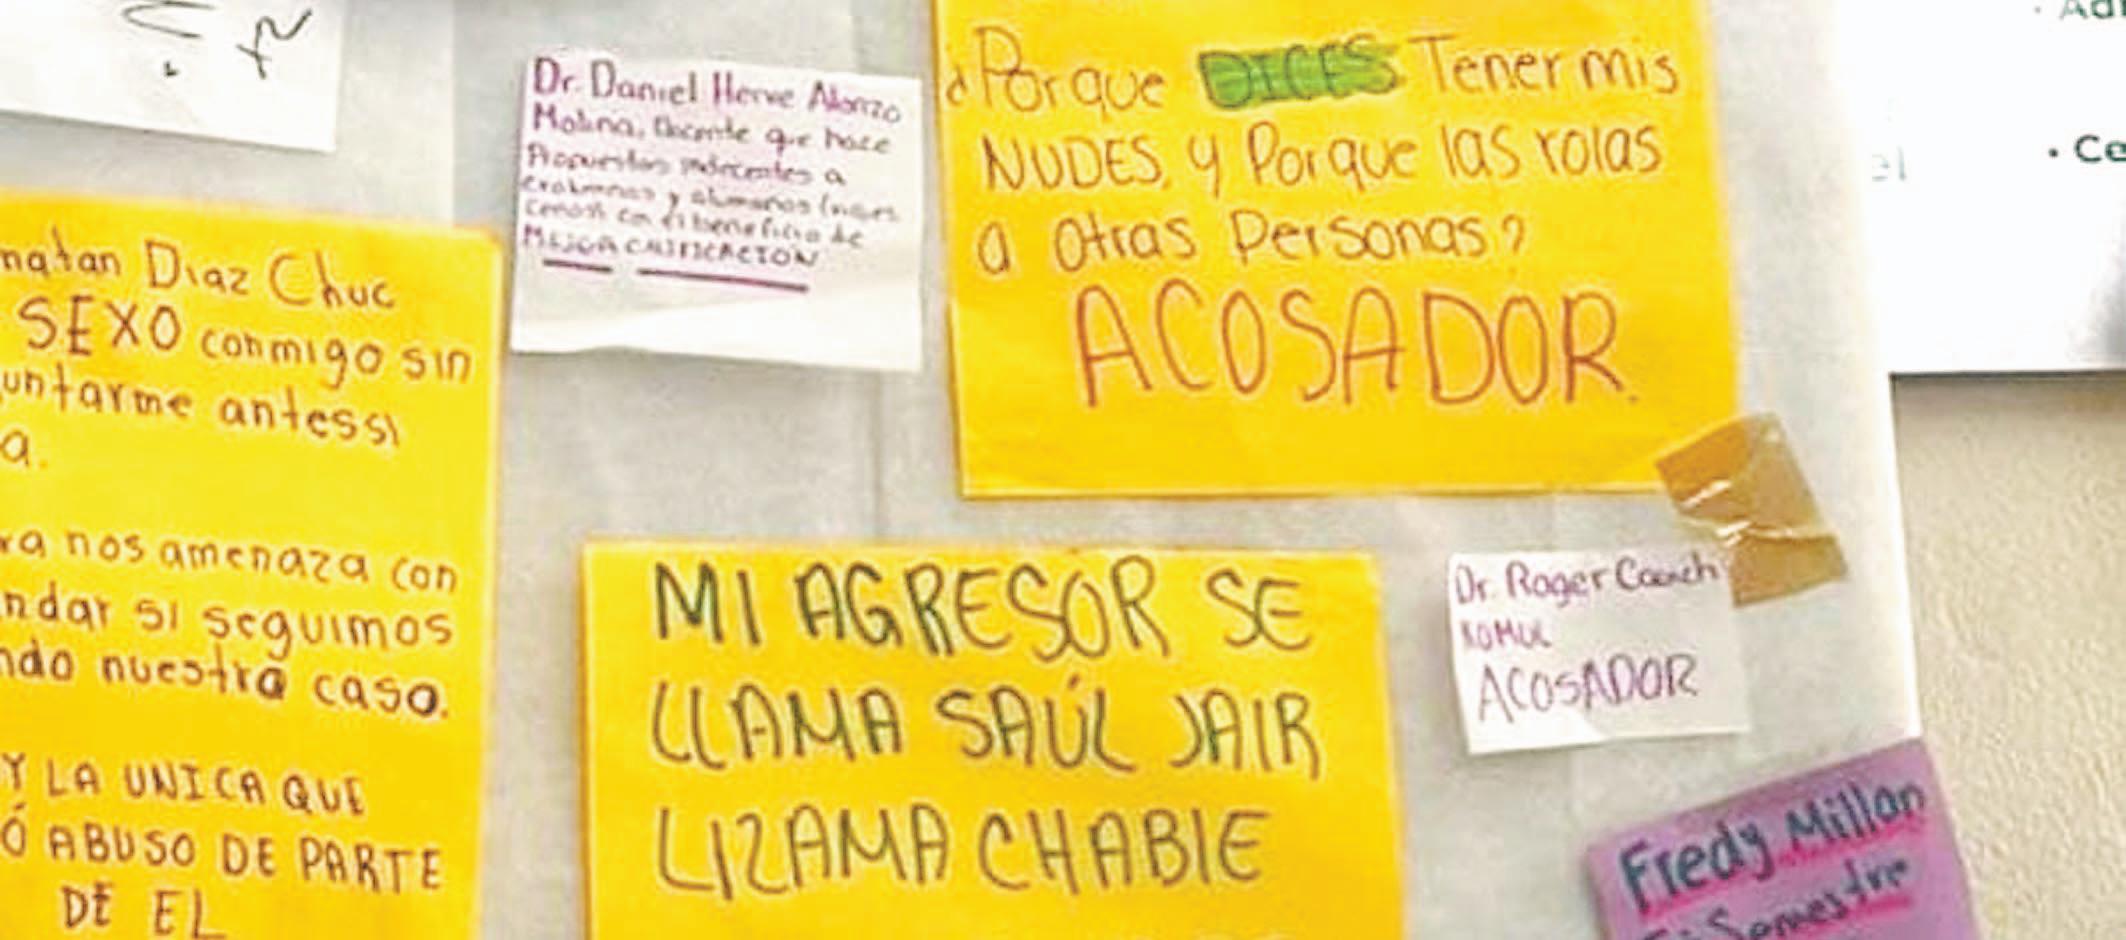 Dr. Daniel Herve Alonzo
Molina, Docente que hace
Propuestas indecentes a
exalumnas y alumnas
con el beneficio de
MEJOR CALIFICACION
¿Porque DICES Tener mis
NUDES, y Porque las rolas
a otras Personas?
ACOSADOR.
natan Diaz Chuc
SEXO conmigo sin
untarme antes si
a.
ra nos amenaza con
ndar si seguimos
ndo nuestra caso.
Y LA UNICA QUE
Ó ABUSO DE PARTE
DE EL
MI AGRESOR SE
LLAMA SAÚL JAIR
LIZAMA CHABLE
Dr. Roger
KOMUL
ACOSADOR
Fredy Millan
Semestre
· Ce